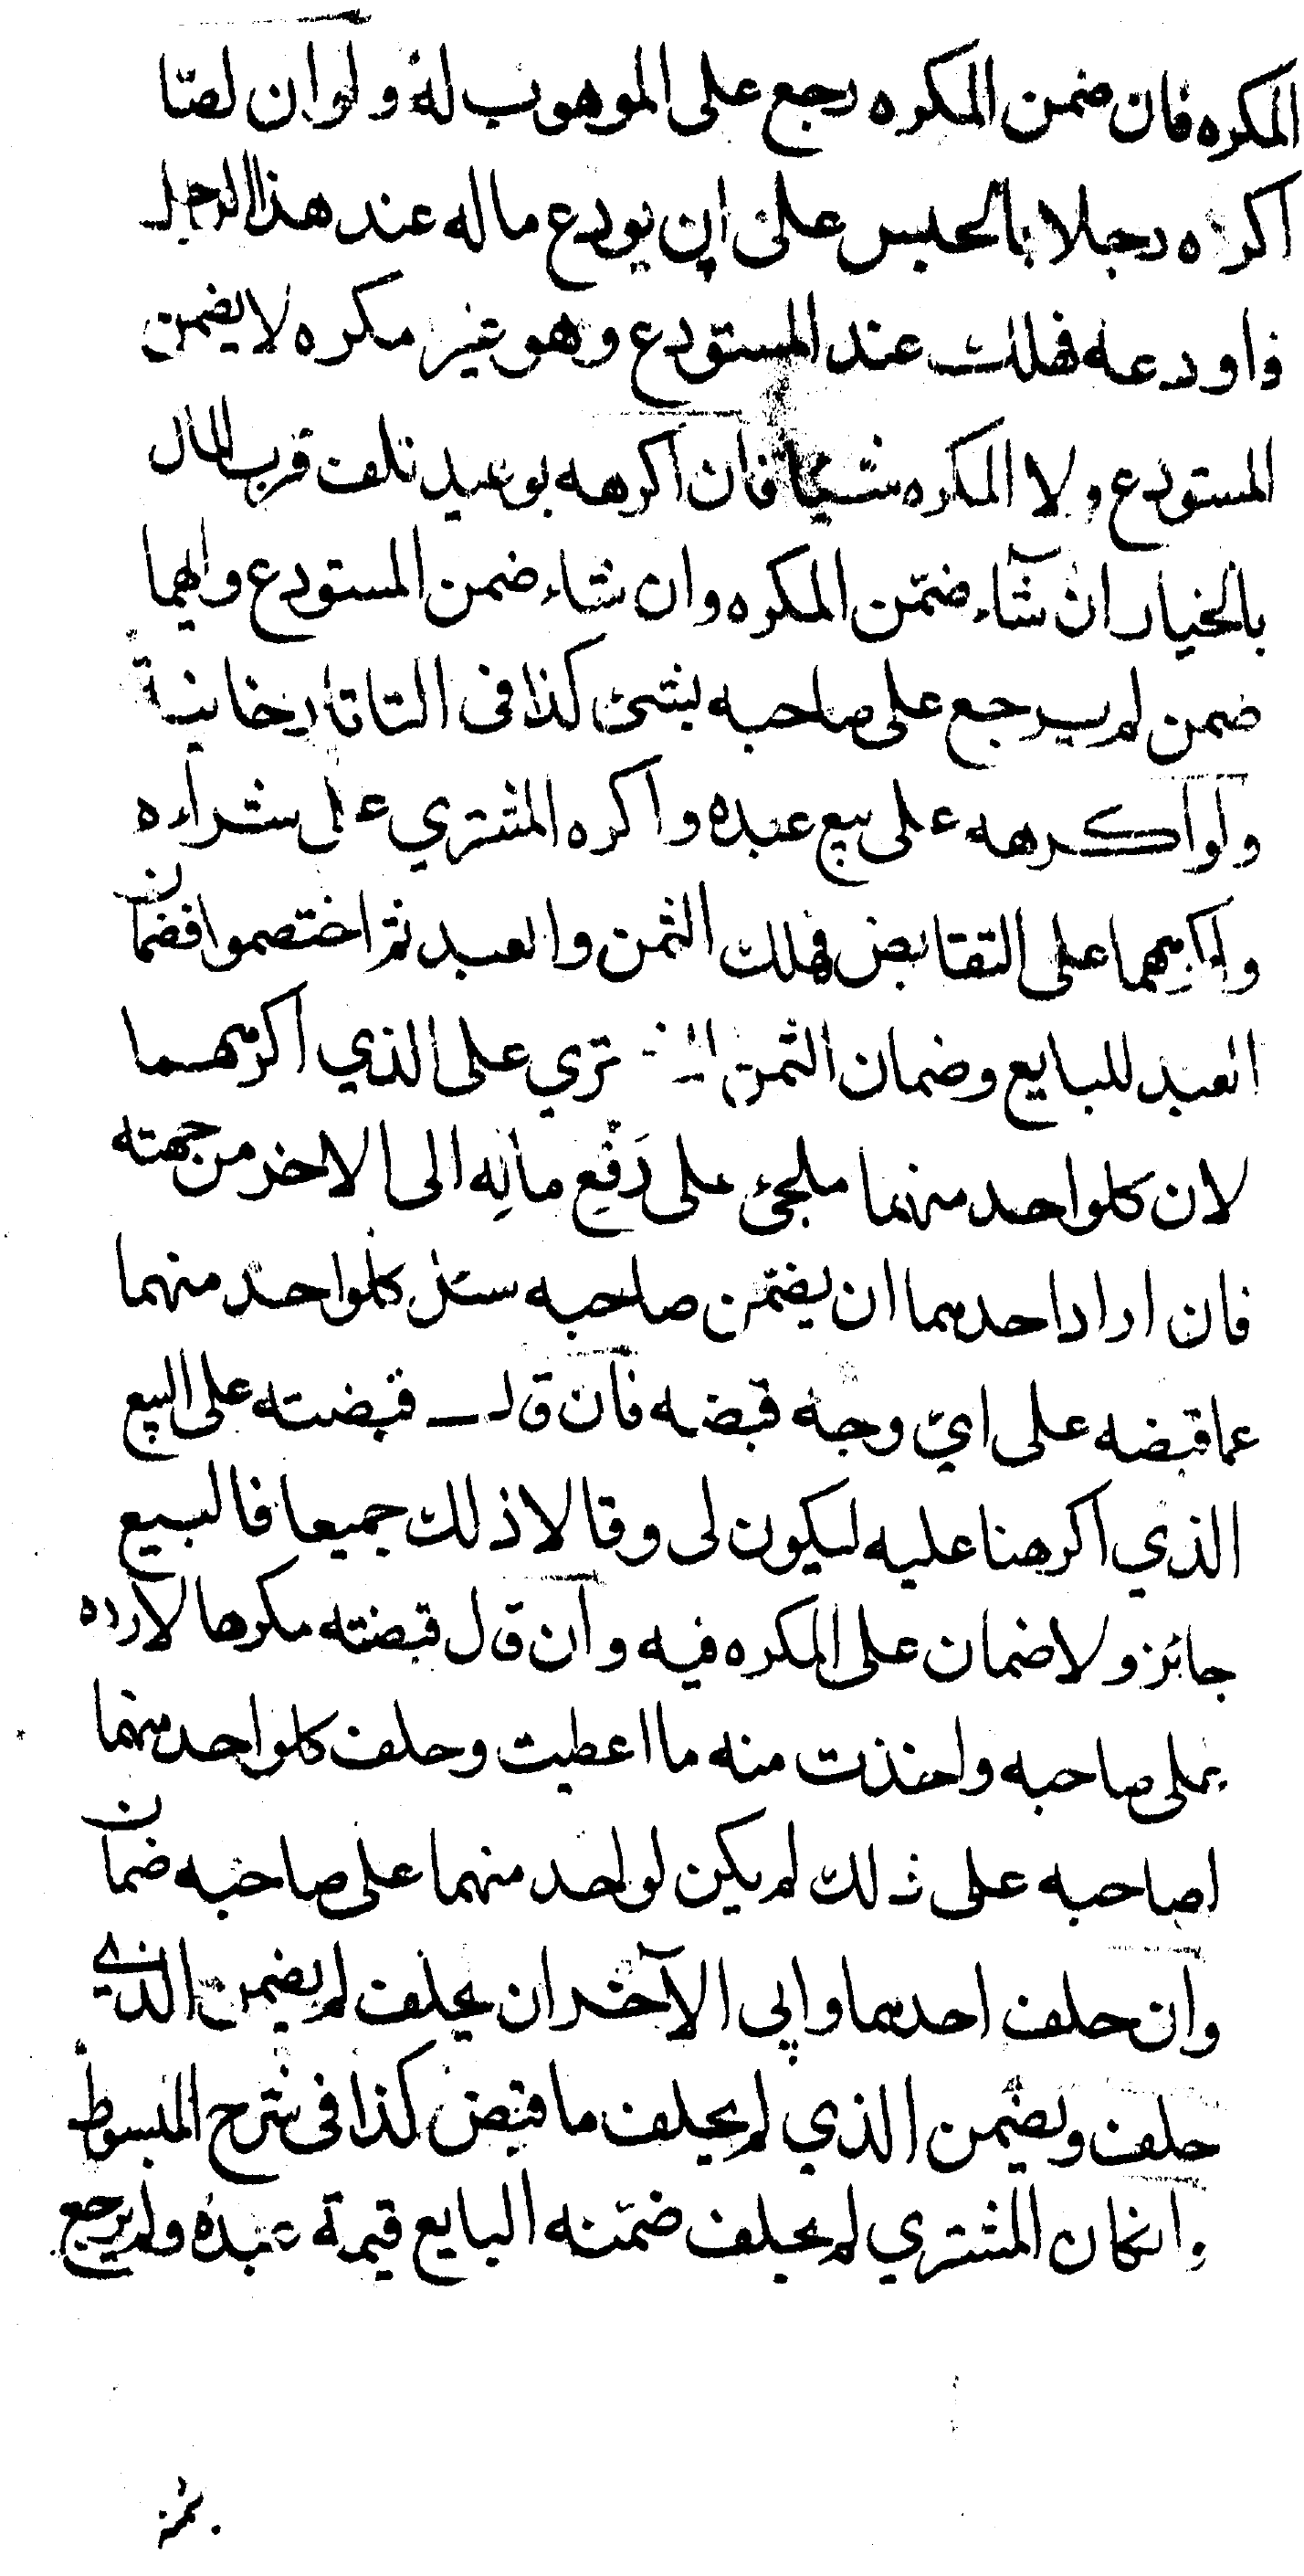 المكره فان ضمن المكره رجع على الموهوب له ولو ان لصّا
اكراه رجلا بالحبس على ان يودع ماله عند هذا الرجل
فاودعه فهلك عند المستودع وهو غير مكره لا يضمن
المستودع ولا المكره شيئا فان اكرهه بوعيد تلف فرب المال
بالخيار ان شآء ضمّن المكره وان شاء ضمن المستودع وايهما
ضمن لم يرجع على صاحبه بشئ كذا فى التاتارخانية
ولو اكرهه على بيع عبده واكره المشتري على شراءه
واكرههما على التقابض فهلك الثمن والعبد ثم اختصموا فضمان
العبد للبايع وضمان الثمن للمشتري على الذي اكرههما
لان كلواحد منهما ملجئ على دَفع مالِه الى الاخر من جهته
فان اراد احدهما ان يضمّن صاحبه سئل كلواحد منهما
عما قبضه على ايّ وجه قبضه فان قال قبضته على البيع
الذي اكرهنا عليه ليكون لى وقالا ذلك جميعا فالبيع
جائز ولا ضمان على المكره فيه وان قال قبضته مكرها لارده
على صاحبه واخذت منه ما اعطيت وحلف كلواحد منهما
لصاحبه على ذلك لم يكن لواحد منهما على صاحبه ضمان
وان حلف احدهما وابى الآخر ان يحلف لم يضمن الذي
حلف ويضمن الذي لم يحلف ما قبض كذا فى شرح المبسوط
وانكان المشتري لم يحلف ضمّنه البايع قيمة عبده ولم يرجع
بثمن